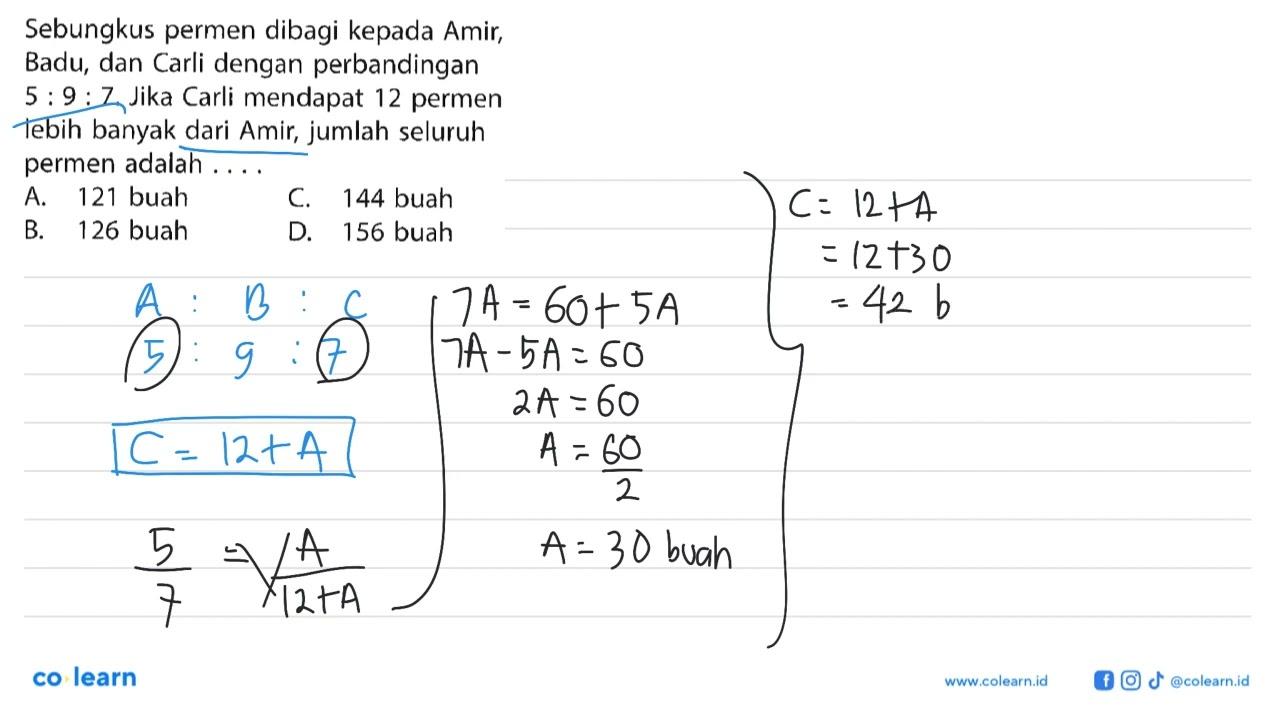 Sebungkus permen dibagi kepada Amir,
Badu, dan Carli dengan perbandingan
5 : 9 : 7. Jika Carli mendapat 12 permen
lebih banyak dari Amir, jumlah seluruh
permen adalah . . . .
A. 121 buah C. 144 buah
B. 126 buah D. 156 buah
A : B : C
5 : 9 : 7
C = 12 + A
5/7 = A/12+A
7A = 60 + 5A
7A - 5A = 60
2A = 60
A = 60/2
A = 30 buah
C = 12 + A
= 12 + 30
= 42 b
co learn
www.colearn.id
@colearn.id